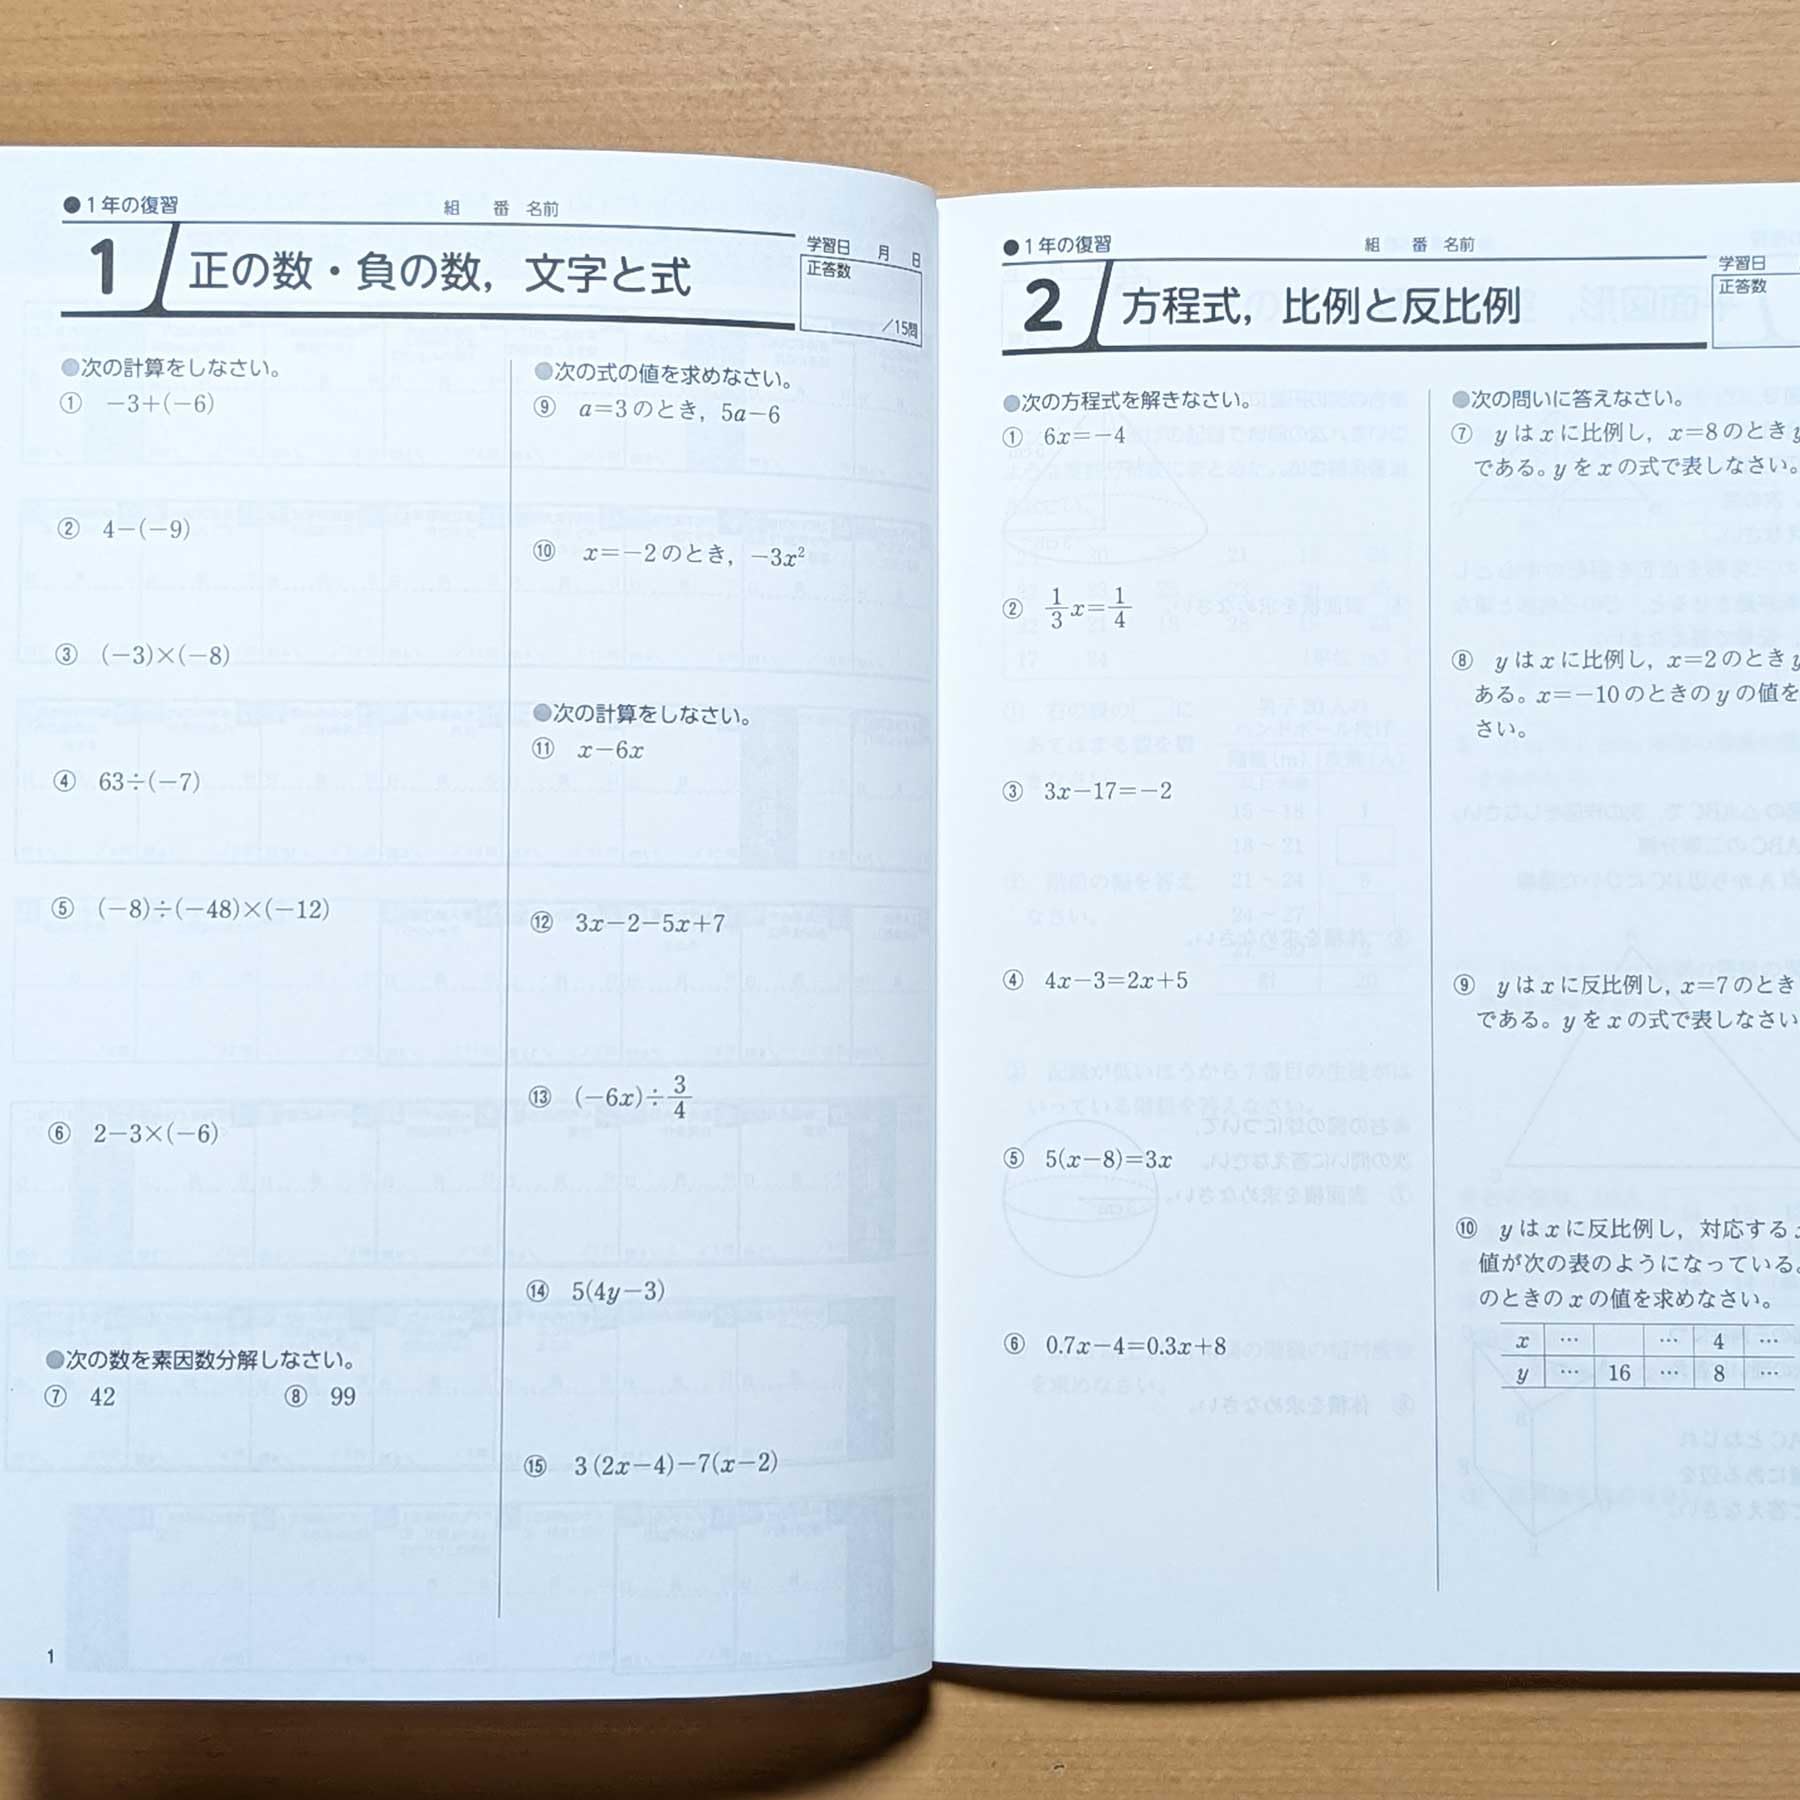 ●1年の復習
組 番 名前
1 正の数・負の数，文字と式
学習日 月 日
正答数
／15問
●次の計算をしなさい。
① −3+(−6)
② 4−(−9)
③ (−3)×(−8)
④ 63÷(−7)
⑤ (−8)÷(−48)×(−12)
⑥ 2−3×(−6)
●次の数を素因数分解しなさい。
⑦ 42 ⑧ 99
●次の式の値を求めなさい。
⑨ a=3のとき，5a−6
⑩ x=−2のとき，−3x²
●次の計算をしなさい。
⑪ x−6x
⑫ 3x−2−5x+7
⑬ (−6x)÷3/4
⑭ 5(4y−3)
⑮ 3(2x−4)−7(x−2)
1
●1年の復習
組 番 名前
2 方程式，比例と反比例
学習日
正答数
●次の方程式を解きなさい。
① 6x=−4
② 1/3x=1/4
③ 3x−17=−2
④ 4x−3=2x+5
⑤ 5(x−8)=3x
⑥ 0.7x−4=0.3x+8
●次の問いに答えなさい。
⑦ yはxに比例し，x=8のときy
である。yをxの式で表しなさい。
⑧ yはxに比例し，x=2のときy
ある。x=−10のときのyの値を
さい。
⑨ yはxに反比例し，x=7のとき
である。yをxの式で表しなさい
⑩ yはxに反比例し，対応するx
値が次の表のようになっている。
のときのxの値を求めなさい。
x … … 4 …
y … 16 … 8 …